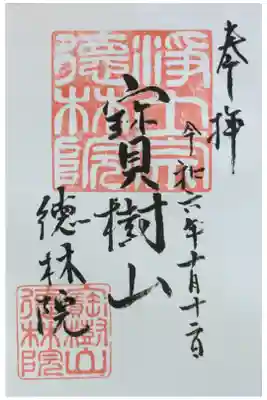 奉拝
令和六年十月十二日
寳樹山
徳林院
浄土宗
徳林院
寳樹山
徳林院